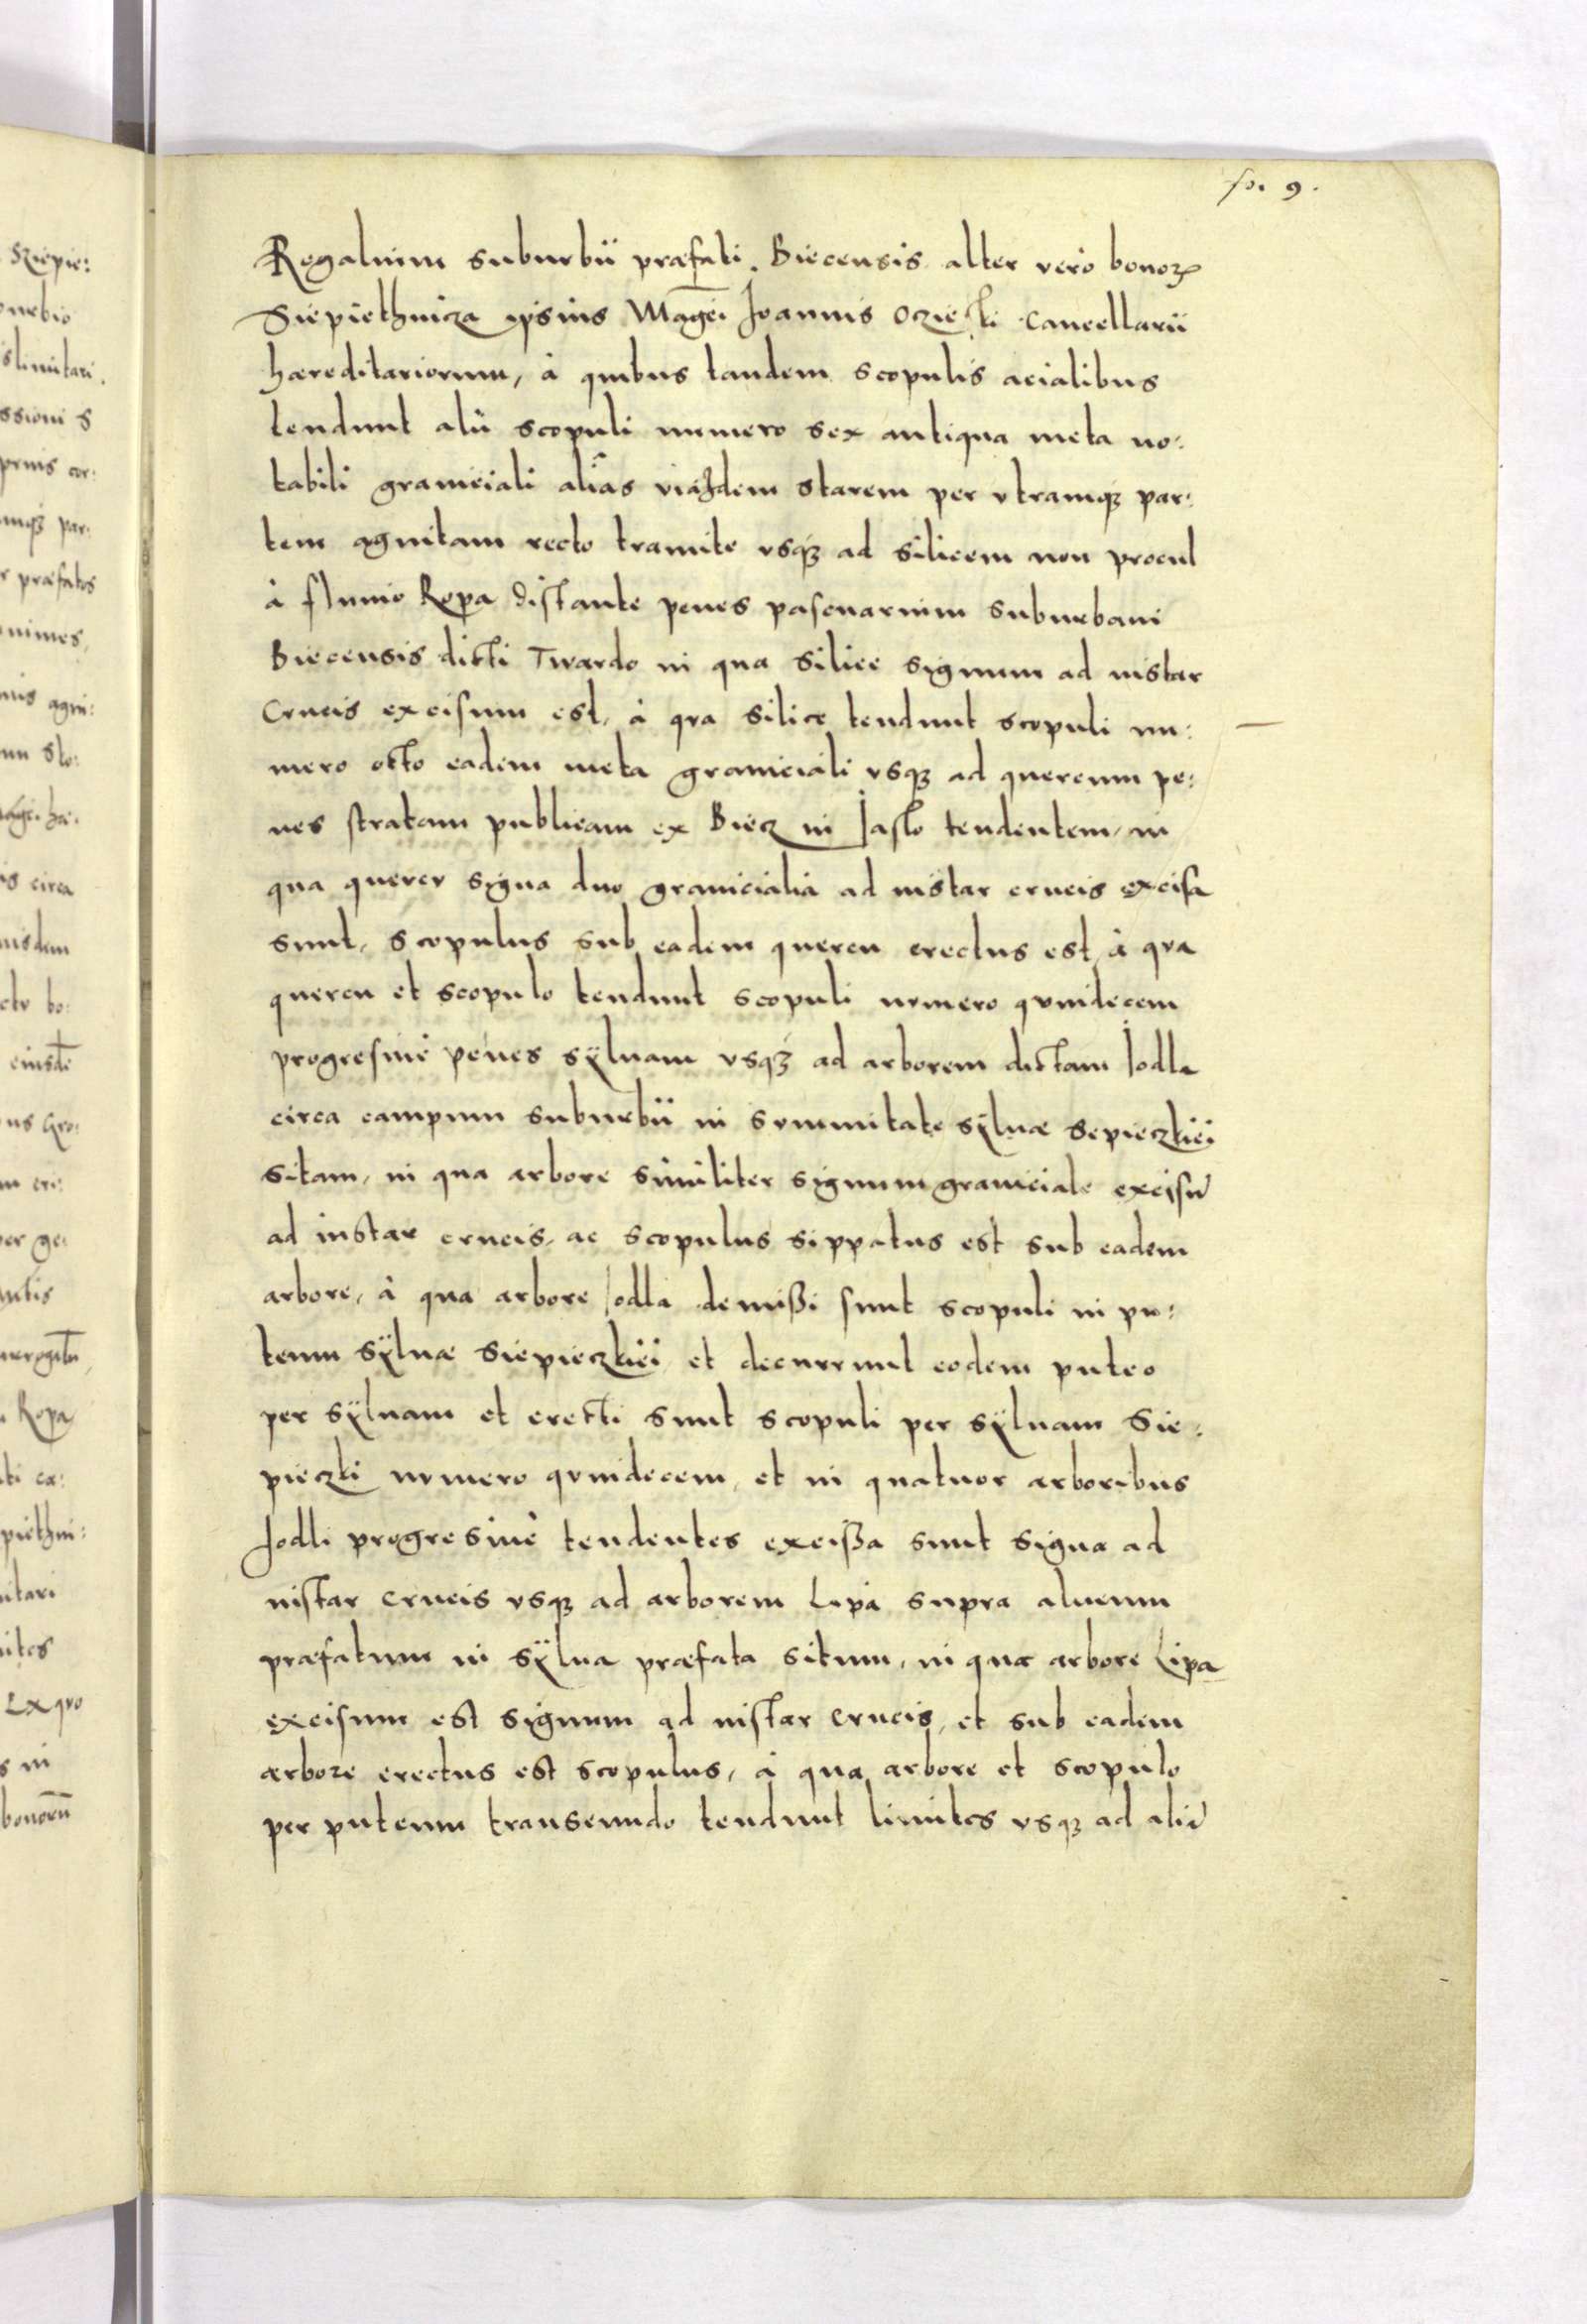 fo. 9.
Regalium suburbii præfati. Biecensis alter vero bonorꝫ
Siepiethnicza ipsius Mag̃ei Joannis Oczieski Cancellarii
hæreditariorum, à quibus tandem scopulis acialibus
tendunt alii scopuli numero sex antiqua meta no:
tabili graniciali aliãs viazdem starem per vtramqꝫ par:
tem agnitam recto tramite vsqꝫ ad silicem non procul
à fluuio Ropa distante penes pascuarium suburbani
Biecensis dicti Twardo in qua silice signum ad instar
Crucis excisum est, à qva silice tendunt scopuli nu:
mero octo eadem meta graniciali vsqꝫ ad quercum pe:
nes stratam publicam ex Biecz in Jaslo tendentem, in
qua quercv signa duo granicialia ad instar crucis excisa
sunt, scopulus sub eadem quercu erectus est, à qva
quercu et scopulo tendunt scopuli nvmero qvindecem
progresiuè penes sÿluam vsqꝫ ad arborem dictam Jodla
circa campum suburbii in svmmitate sÿluæ Sepieczkiei
sitam, in qua arbore similiter signum graniciale excisũ
ad instar crucis, ac scopulus sippatus est sub eadem
arbore, à qua arbore Jodla demißi sunt scopuli in pu:
teum sÿluæ Siepieczkiei et decurrunt eodem puteo
per sÿluam et erecti sunt scopuli per sÿluam Sie:
pieczki nvmero qvindecem, et in quatuor arboribus
Jodli progresiuè tendentes excißa sunt signa ad
instar Crucis vsqꝫ ad arborem Lipa supra alueum
præfatum in sÿlua præfata situm, in qua arbore Lipa
excisum est signum ad instar crucis, et sub eadem
arbore erectus est scopulus, à qua arbore et scopulo
per puteum transeundo tendunt limites vsqꝫ ad aliũ